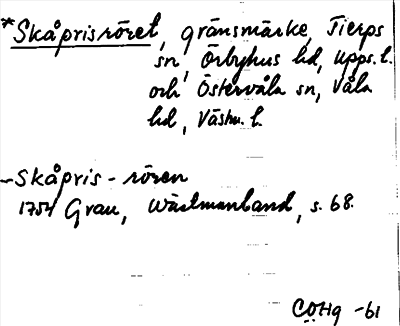 *Skåprisröret, gränsmärke, Tierps
sn, Örbyhus hd, Upps. l.
och Östervåla sn, Våla
hd, Västm. l.
~Skåpris-rören
1754 Grau, Wästmanland, s. 68.
CÖHg -61